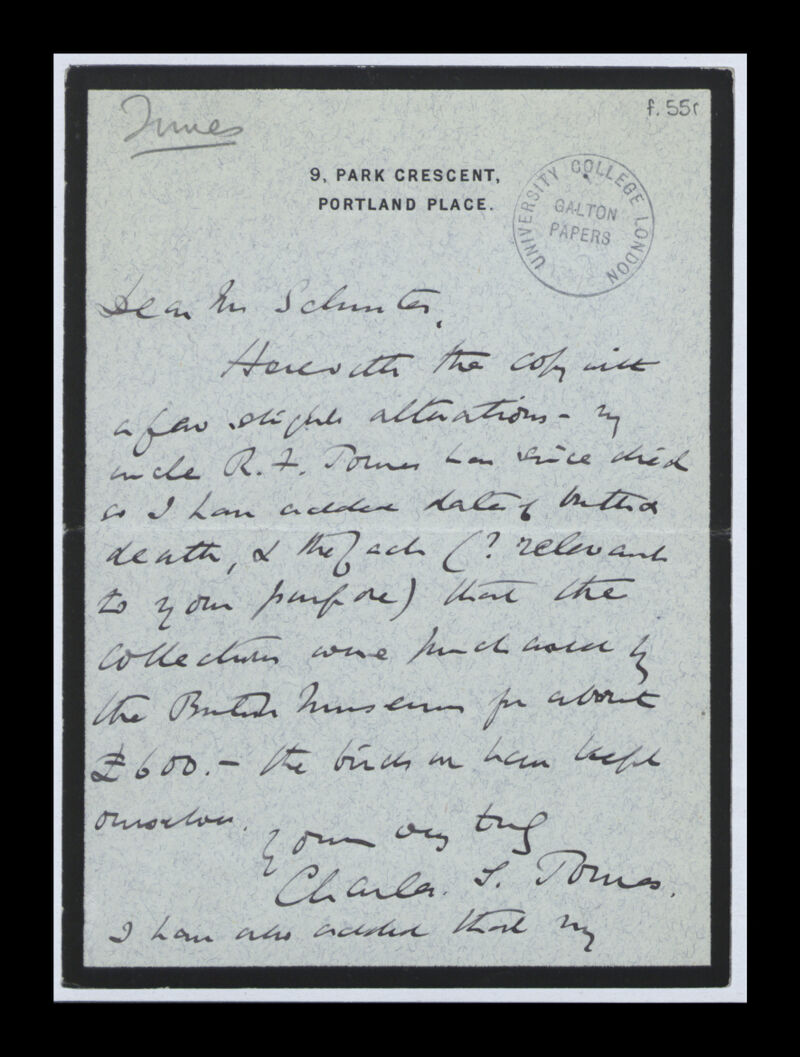 Tomes
f. 55r
9, PARK CRESCENT,
PORTLAND PLACE.
UNIVERSITY COLLEGE LONDON
GALTON
PAPERS
Dear Mr Schuster,
Herewith the copy with
a few slight alterations - my
uncle R. F. Tomes has since died
so I have added date of birth &
death, & the fact (? relevant
to your purpose) that the
collections were purchased by
the British Museum for about
£600. - the birds we have kept
ourselves.
Yours very truly
Charles. S. Tomes.
I have also added that my